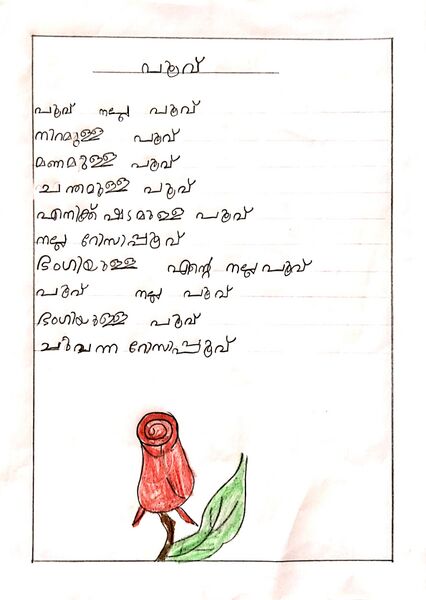 പൂവ്
പൂവ് നല്ല പൂവ്
നിറമുള്ള പൂവ്
മണമുള്ള പൂവ്
ചന്തമുള്ള പൂവ്
എനിക്ക് ഷടമുള്ള പൂവ്
നല്ല റോസിപ്പൂവ്
ഭംഗിയുള്ള എന്റെ നല്ല പൂവ്
പൂവ് നല്ല പൂവ്
ഭംഗിയുള്ള പൂവ്
ചുവന്ന റോസിപ്പൂവ്